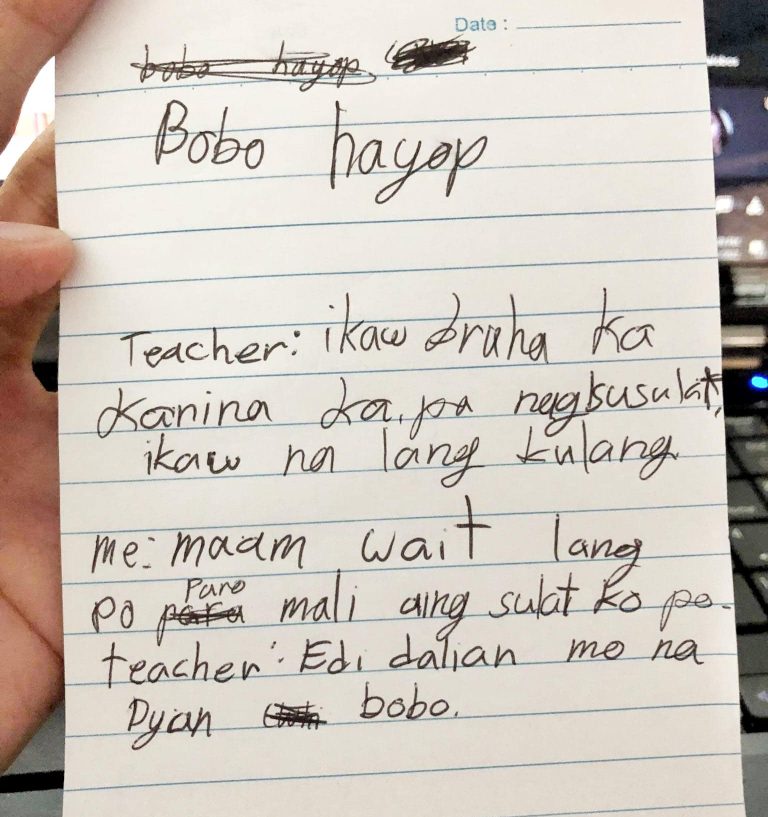 Date :
bobo hayop
Bobo hayop
Teacher: ikaw bruha ka
kanina ka pa nagsusulat,
ikaw na lang kulang
me: maam wait lang
Paro
po para mali aing sulat ko po.
teacher: Edi dalian mo na
Dyan bobo.